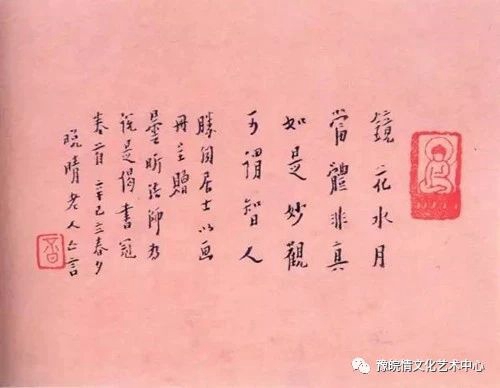 鏡花水月
當體非真
如是妙觀
可謂智人
勝閏居士以画
冊贈
曇昕法師為
說是偈書冠
卷首 立春夕
晚晴老人亡言
音
豫皖情文化艺术中心